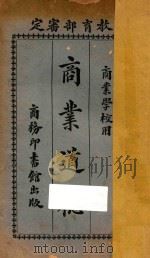 教育部審定
商業學校用
商業道德
商務印書館出版